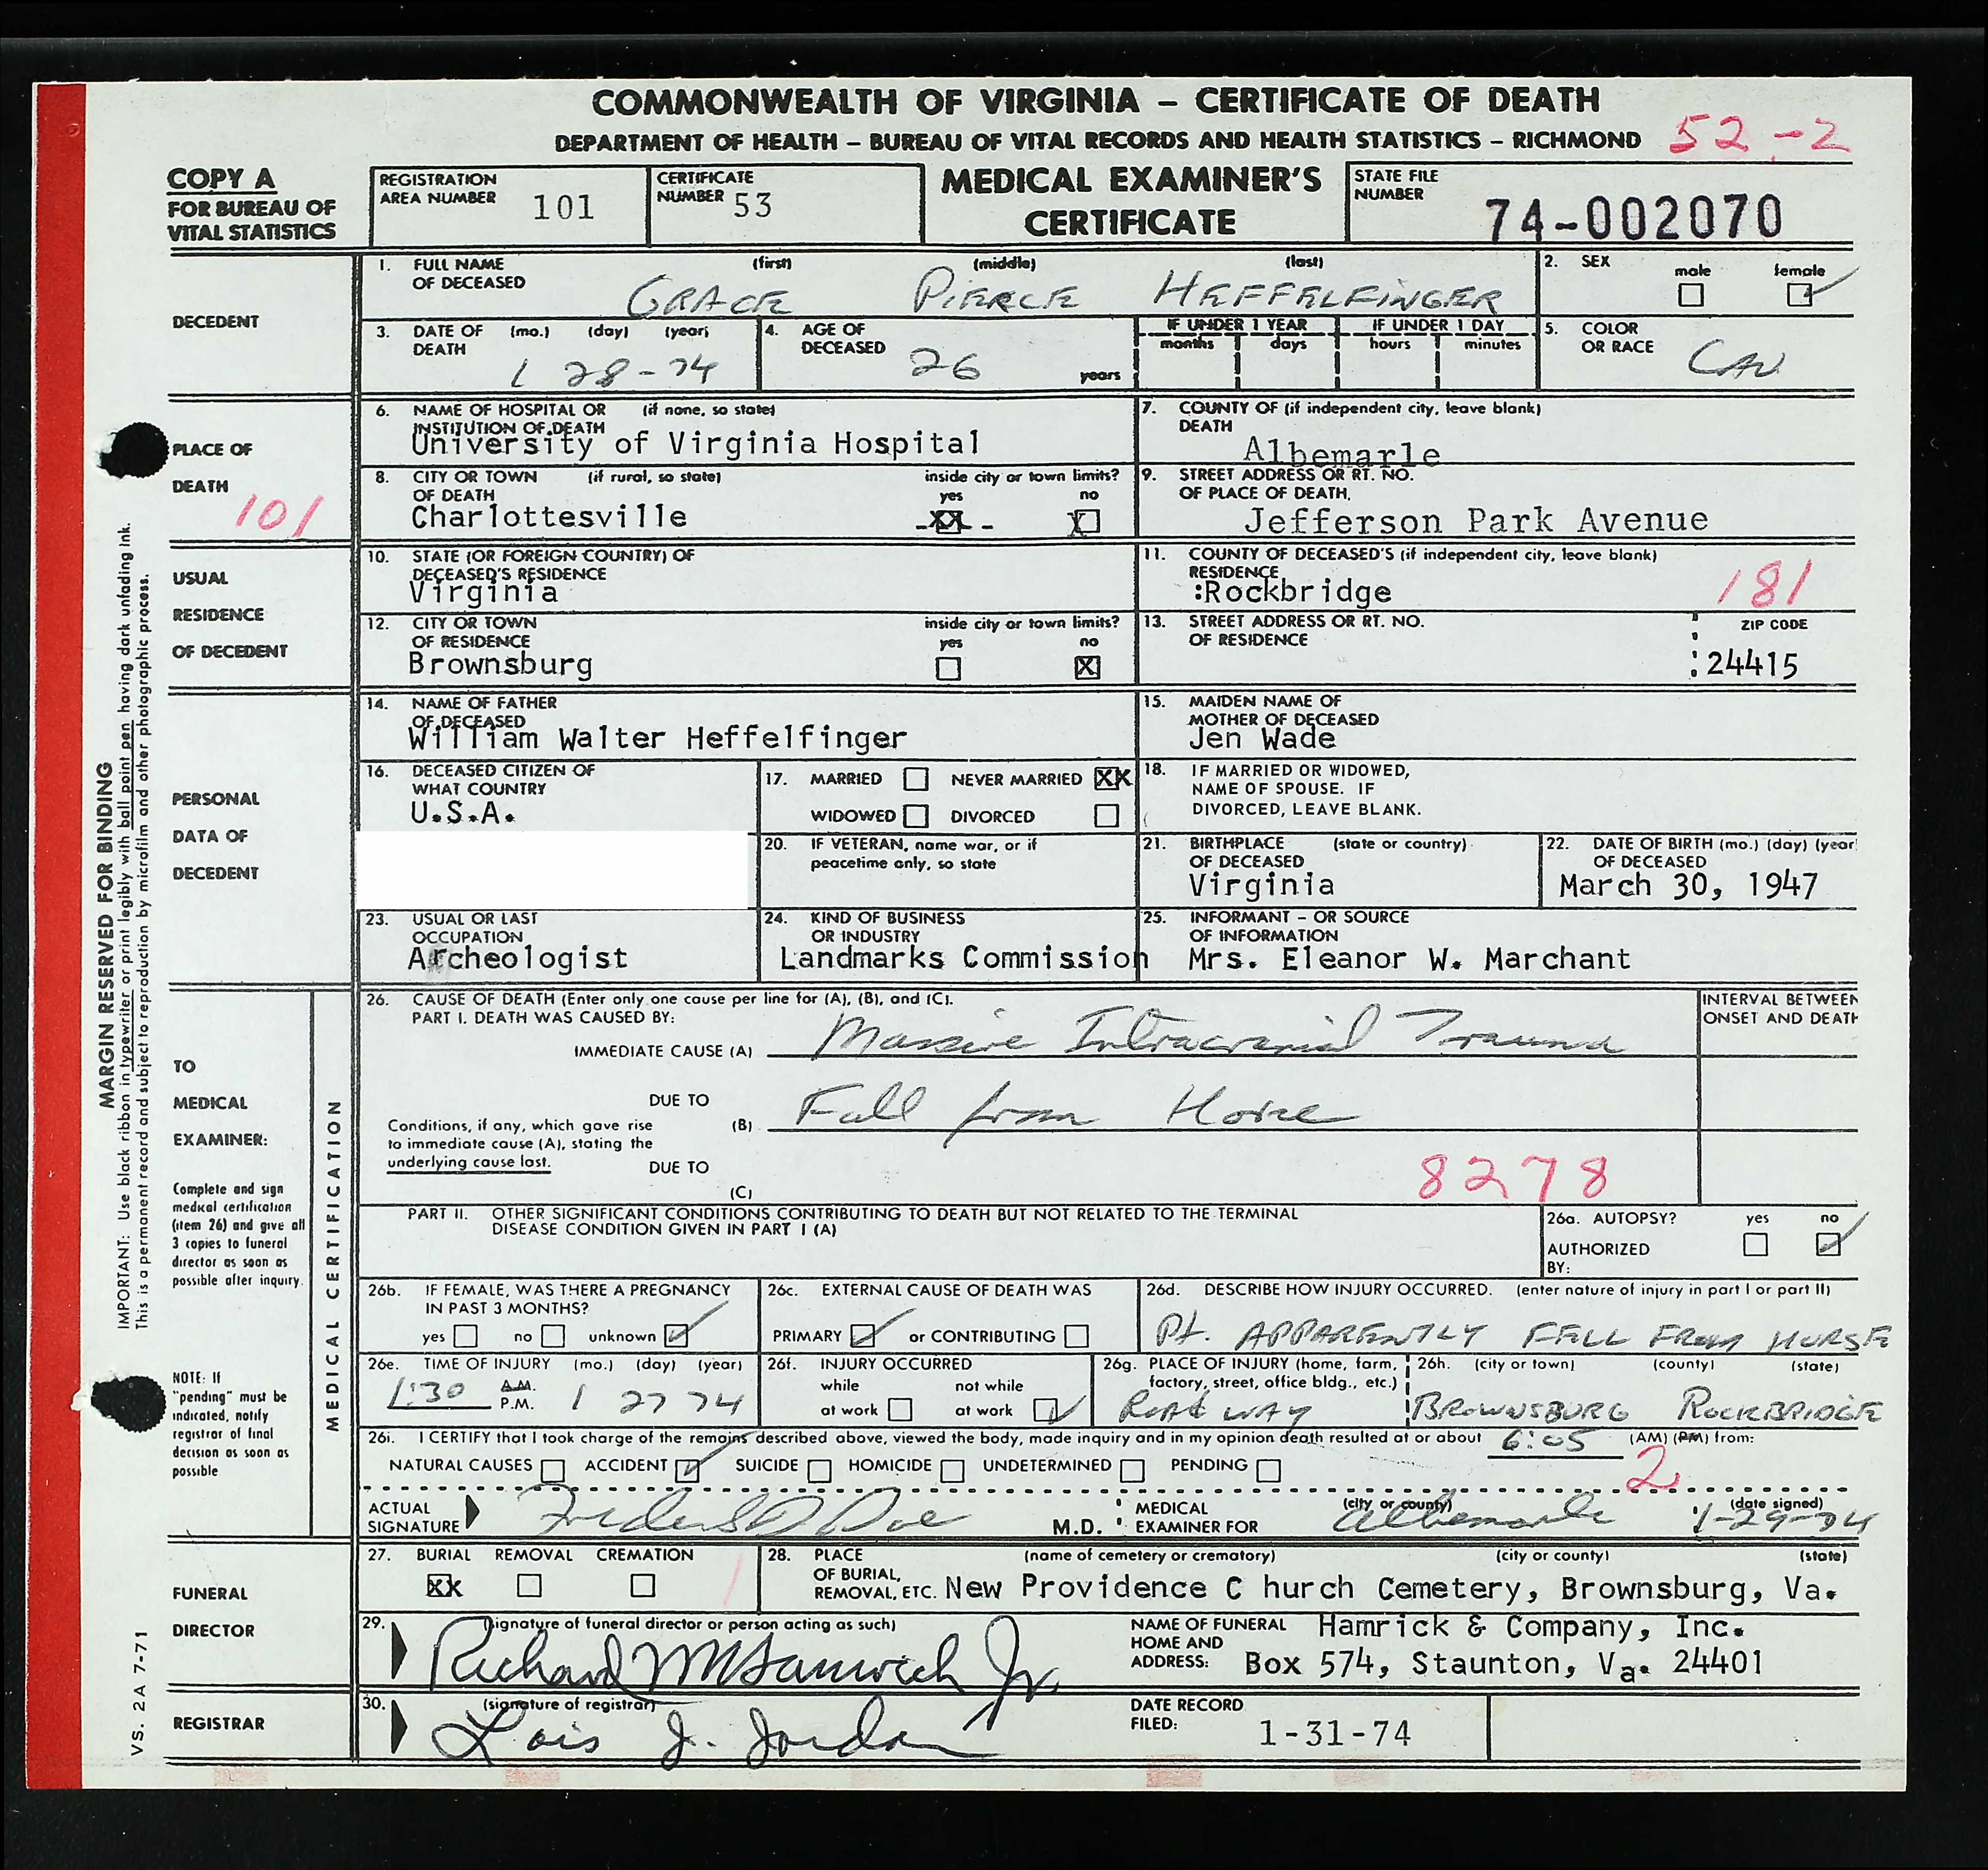 COMMONWEALTH OF VIRGINIA – CERTIFICATE OF DEATH
DEPARTMENT OF HEALTH – BUREAU OF VITAL RECORDS AND HEALTH STATISTICS – RICHMOND 52-2
COPY A
FOR BUREAU OF
VITAL STATISTICS
REGISTRATION
AREA NUMBER 101
CERTIFICATE
NUMBER 53
MEDICAL EXAMINER'S
CERTIFICATE
STATE FILE
NUMBER
74-002070
DECEDENT
1. FULL NAME (first) (middle) (last)
OF DECEASED GRACE PIERCE HEFFELFINGER
2. SEX male female
3. DATE OF (mo.) (day) (year)
DEATH 1 28-74
4. AGE OF
DECEASED 26 years
IF UNDER 1 YEAR IF UNDER 1 DAY
months days hours minutes
5. COLOR
OR RACE CAU
PLACE OF
DEATH
101
6. NAME OF HOSPITAL OR (if none, so state)
INSTITUTION OF DEATH
University of Virginia Hospital
7. COUNTY OF (if independent city, leave blank)
DEATH
Albemarle
8. CITY OR TOWN (if rural, so state) inside city or town limits?
OF DEATH yes no
Charlottesville XX X
9. STREET ADDRESS OR RT. NO.
OF PLACE OF DEATH.
Jefferson Park Avenue
USUAL
RESIDENCE
OF DECEDENT
10. STATE (OR FOREIGN COUNTRY) OF
DECEASED'S RESIDENCE
Virginia
11. COUNTY OF DECEASED'S (if independent city, leave blank)
RESIDENCE
:Rockbridge 181
12. CITY OR TOWN inside city or town limits?
OF RESIDENCE yes no
Brownsburg X
13. STREET ADDRESS OR RT. NO. ZIP CODE
OF RESIDENCE
24415
PERSONAL
DATA OF
DECEDENT
14. NAME OF FATHER
OF DECEASED
William Walter Heffelfinger
15. MAIDEN NAME OF
MOTHER OF DECEASED
Jen Wade
16. DECEASED CITIZEN OF
WHAT COUNTRY
U.S.A.
17. MARRIED NEVER MARRIED XX
WIDOWED DIVORCED
18. IF MARRIED OR WIDOWED,
NAME OF SPOUSE. IF
DIVORCED, LEAVE BLANK.
20. IF VETERAN, name war, or if
peacetime only, so state
21. BIRTHPLACE (state or country)
OF DECEASED
Virginia
22. DATE OF BIRTH (mo.) (day) (year
OF DECEASED
March 30, 1947
23. USUAL OR LAST
OCCUPATION
Archeologist
24. KIND OF BUSINESS
OR INDUSTRY
Landmarks Commission
25. INFORMANT – OR SOURCE
OF INFORMATION
Mrs. Eleanor W. Marchant
MARGIN RESERVED FOR BINDING
IMPORTANT: Use black ribbon in typewriter or print legibly with ball point pen having dark unfading ink.
This is a permanent record and subject to reproduction by microfilm and other photographic process.
TO
MEDICAL
EXAMINER:
Complete and sign
medical certification
(item 26) and give all
3 copies to funeral
director as soon as
possible after inquiry.
NOTE: If
"pending" must be
indicated, notify
registrar of final
decision as soon as
possible
MEDICAL CERTIFICATION
26. CAUSE OF DEATH (Enter only one cause per line for (A), (B), and (C).
PART I. DEATH WAS CAUSED BY:
INTERVAL BETWEEN
ONSET AND DEATH
IMMEDIATE CAUSE (A) Massive Intracranial Trauma
DUE TO
(B) Fall from Horse
Conditions, if any, which gave rise
to immediate cause (A), stating the
underlying cause last.
DUE TO
(C)
8278
PART II. OTHER SIGNIFICANT CONDITIONS CONTRIBUTING TO DEATH BUT NOT RELATED TO THE TERMINAL
DISEASE CONDITION GIVEN IN PART I (A)
26a. AUTOPSY? yes no
AUTHORIZED
BY:
26b. IF FEMALE, WAS THERE A PREGNANCY
IN PAST 3 MONTHS?
yes no unknown
26c. EXTERNAL CAUSE OF DEATH WAS
PRIMARY or CONTRIBUTING
26d. DESCRIBE HOW INJURY OCCURRED. (enter nature of injury in part I or part II)
Pt. APPARENTLY FELL FROM HORSE
26e. TIME OF INJURY (mo.) (day) (year)
1:30 A.M. P.M. 1 27 74
26f. INJURY OCCURRED
while not while
at work at work
26g. PLACE OF INJURY (home, farm,
factory, street, office bldg., etc.)
ROADWAY
26h. (city or town) (county) (state)
BROWNSBURG ROCKBRIDGE
26i. I CERTIFY that I took charge of the remains described above, viewed the body, made inquiry and in my opinion death resulted at or about 6:05 (AM) (PM) from:
NATURAL CAUSES ACCIDENT SUICIDE HOMICIDE UNDETERMINED PENDING 2
ACTUAL
SIGNATURE M.D.
MEDICAL (city or county) (date signed)
EXAMINER FOR Albemarle 1-29-74
FUNERAL
DIRECTOR
27. BURIAL REMOVAL CREMATION
XX
28. PLACE (name of cemetery or crematory) (city or county) (state)
OF BURIAL,
REMOVAL, ETC. New Providence C hurch Cemetery, Brownsburg, Va.
29. (signature of funeral director or person acting as such)
Richard M Hamrick Jr.
NAME OF FUNERAL Hamrick & Company, Inc.
HOME AND
ADDRESS: Box 574, Staunton, Va. 24401
REGISTRAR
30. (signature of registrar)
Lois J. Jordan
DATE RECORD
FILED: 1-31-74
VS. 2A 7-71